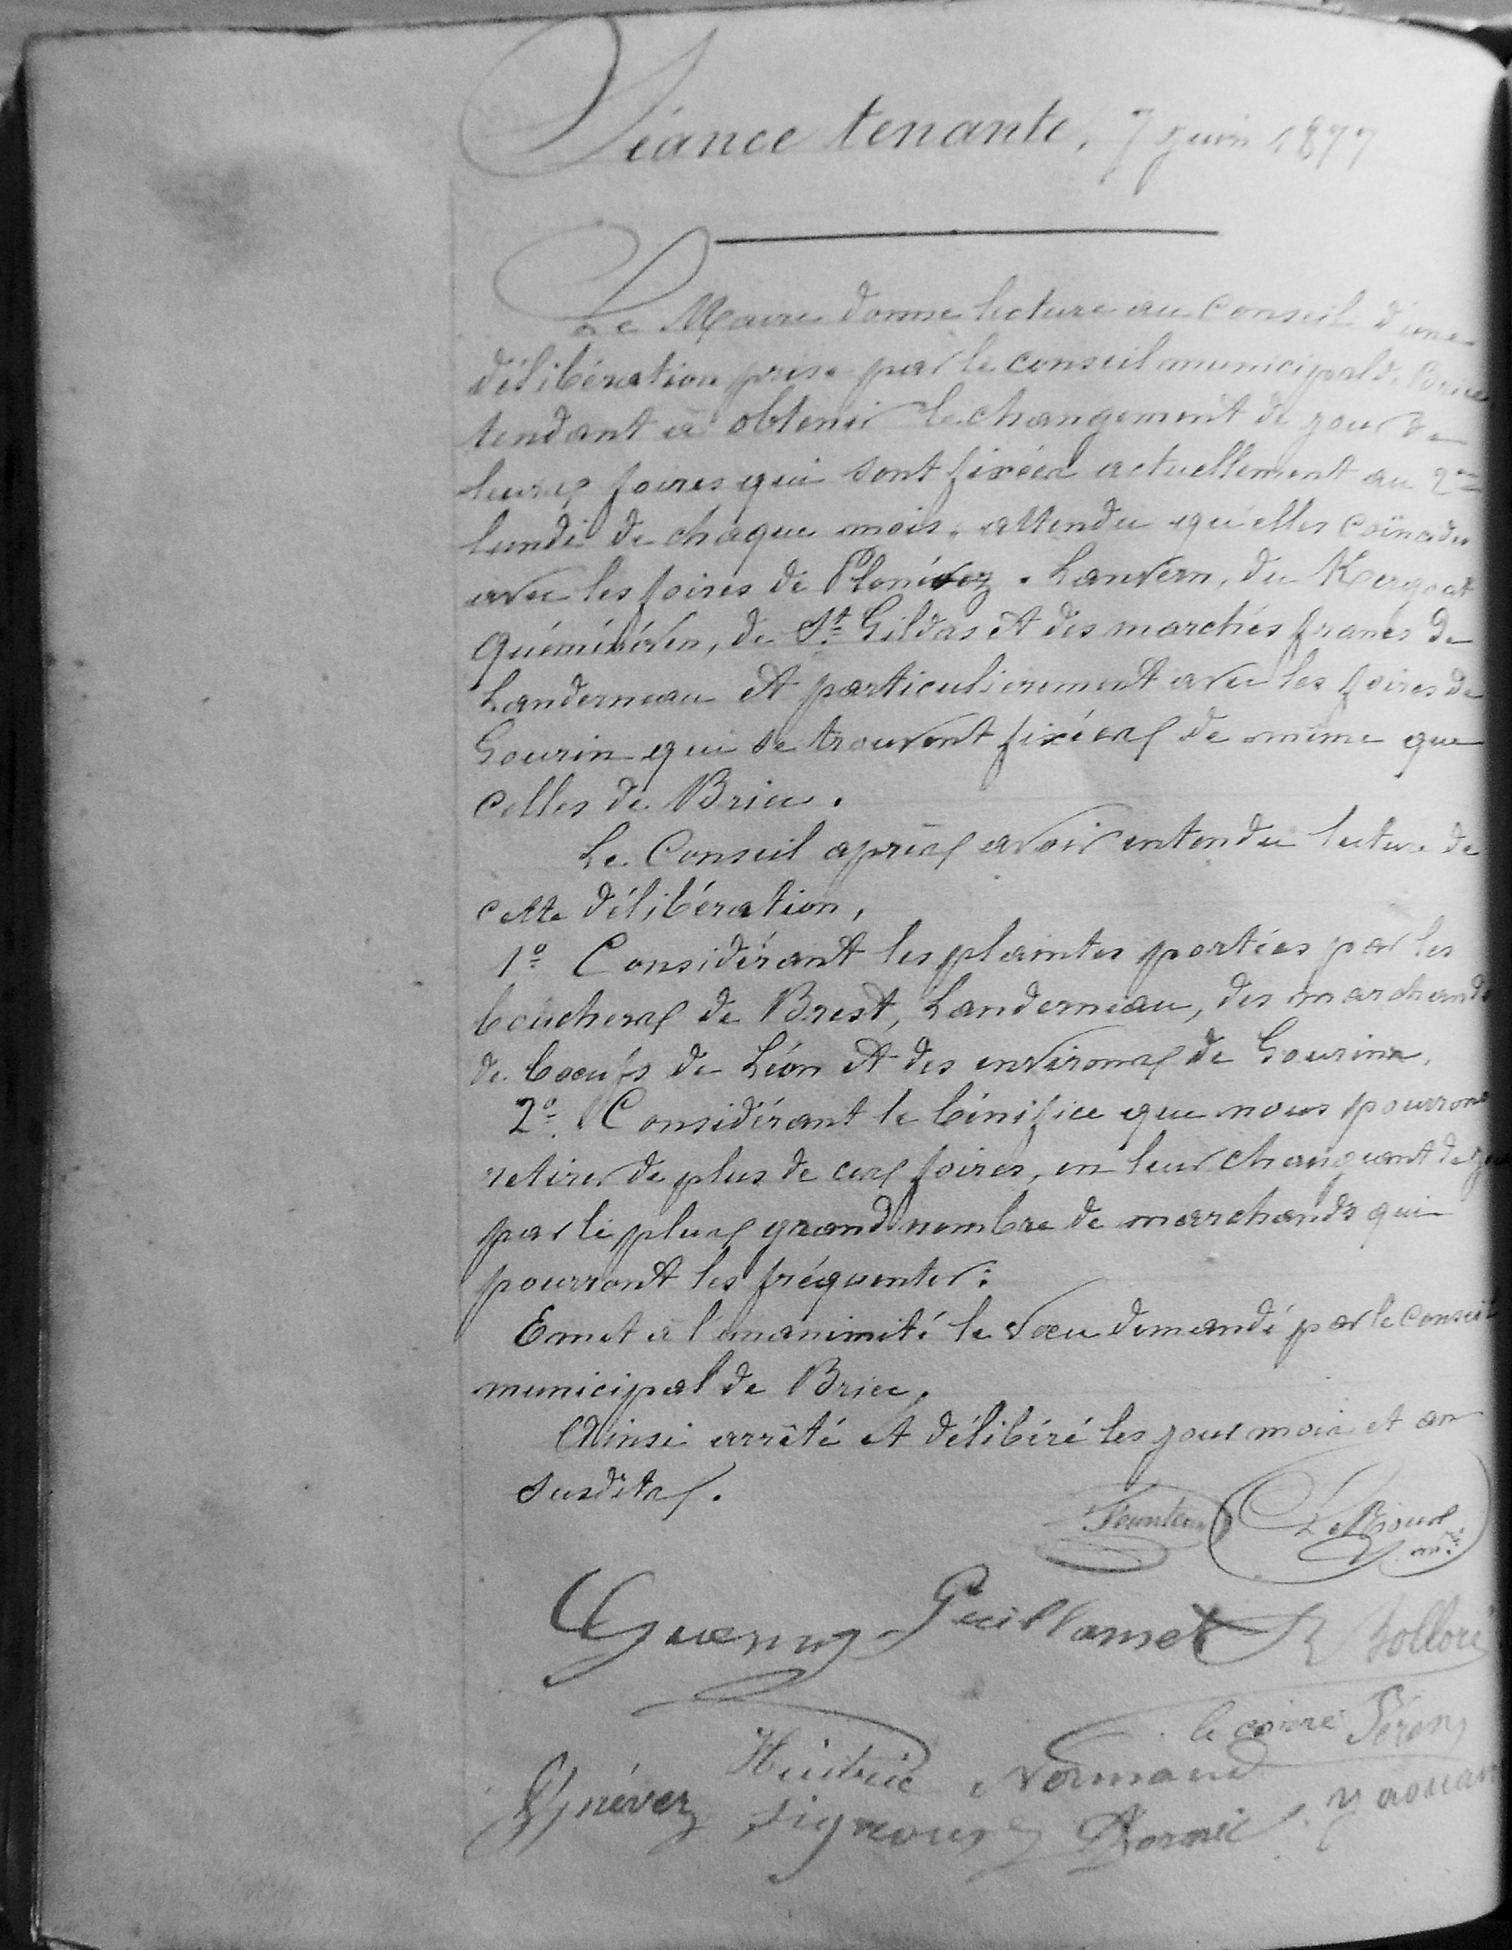 Séance tenante, 7 juin 1897
Le Maire donne lecture au Conseil d'une
délibération prise par le conseil municipal de Briec
tendant à obtenir le changement de jour de
leurs foires qui sont fixées actuellement au 2me
lundi de chaque mois, attendu qu'elles coïncides
avec les foires de Plonévez. Lanvern, du Kergoat
Quéménéven, de St Gildas et des marchés francs de
Landerneau et particulièrement avec les foires de
Gourin qui se trouvent fixées de même que
celles de Briec.
Le Conseil après avoir entendu lecture de
cette délibération,
1o Considérant les plaintes portées par les
bouchers de Brest, Landerneau, des marchands
de bœufs de Léon et des environs de Gourin,
2o. Considérant le bénifice que nous pourrons
retirer de plus de ces foires, en leur changeant de
par le plus grand nombre de marchands qui
pourront les fréquenter:
Emet à l'unanimité le vœu demandé par le conseil
municipal de Briec.
Ainsi arrêté et délibéré les jour mois et an
susdits.
Le Roux
Guillamet Bolloré
le corre Péron
Normand
Gnévez